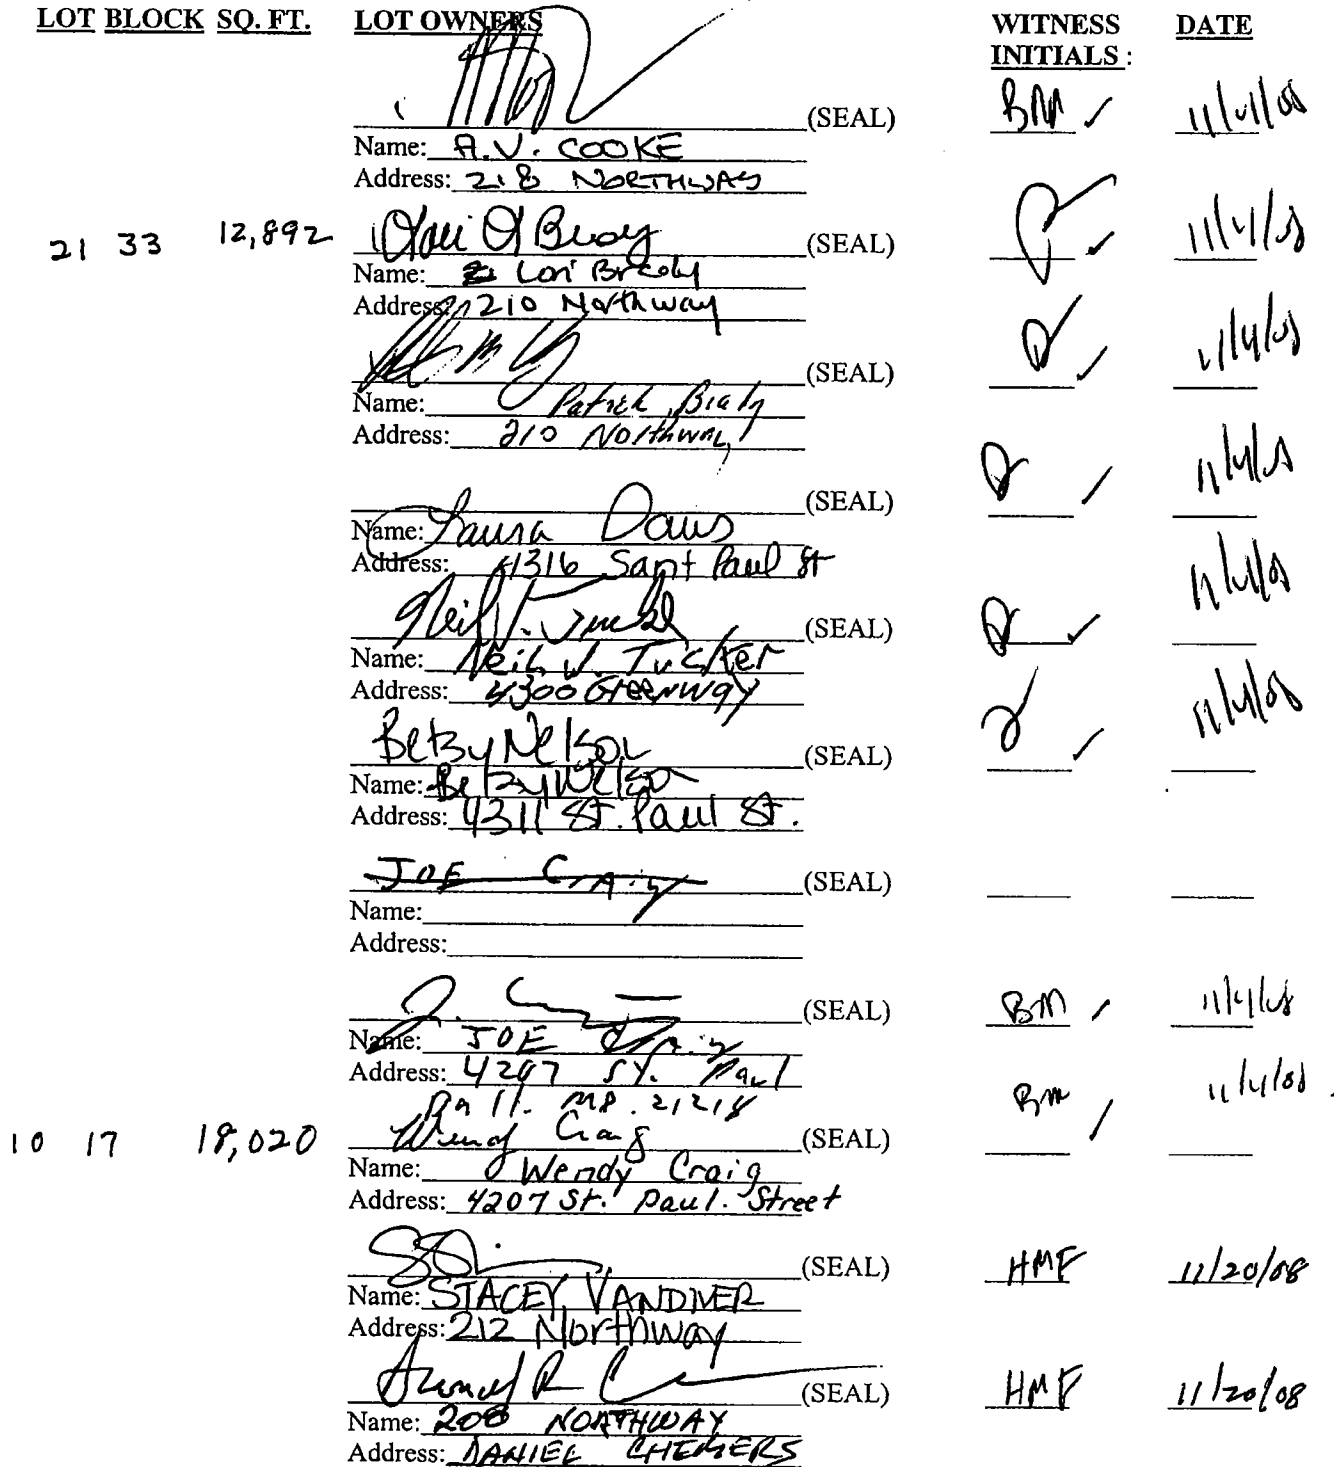 LOT BLOCK SQ. FT. LOT OWNERS WITNESS INITIALS : DATE
(SEAL) BM ✓
Name: A.V. COOKE
Address: 218 NORTHWAY
21 33 12,892 (SEAL) ✓ 11/4/08
Name: Lori Brady
Address: 210 Northway
(SEAL) ✓ 11/4/08
Name: Patrick Brady
Address: 210 Northway
(SEAL) ✓ 11/4/08
Name: Laura Daws
Address: 4316 Saint Paul St
Neil J. Tucker (SEAL) ✓ 11/4/08
Name: Neil J. Tucker
Address: 4300 Greenway
Betsy Nelson (SEAL) ✓ 11/4/08
Name: Betsy Nelson
Address: 4311 St. Paul St.
JOE Craig (SEAL)
Name:
Address:
(SEAL) BM ✓ 11/4/08
Name: JOE Craig
Address: 4207 St. Paul
Balt. MD. 21218
10 17 18,020 Wendy Craig (SEAL) BM ✓ 11/4/08
Name: Wendy Craig
Address: 4207 St. Paul. Street
(SEAL) HMF 11/20/08
Name: STACEY VANDIVER
Address: 212 Northway
(SEAL) HMF 11/20/08
Name: 208 NORTHWAY
Address: DANIEL CHEMERS